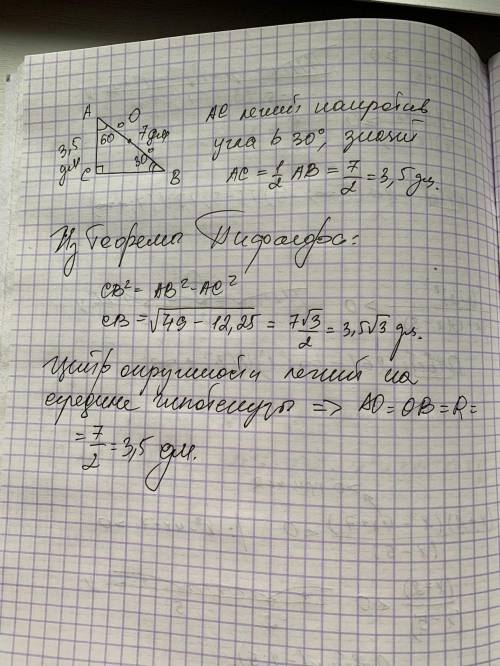 A
O
60
7 дм
3,5
дм
30
C
B
AC лежит напротив
угла в 30°, значит
AC = 1/2 AB = 7/2 = 3,5 дм.
Из Теоремы Пифагора:
CB² = AB² - AC²
CB = √49 - 12,25 = 7√3/2 = 3,5√3 дм.
Центр окружности лежит на
середине гипотенузы => AO = OB = R =
= 7/2 = 3,5 дм.